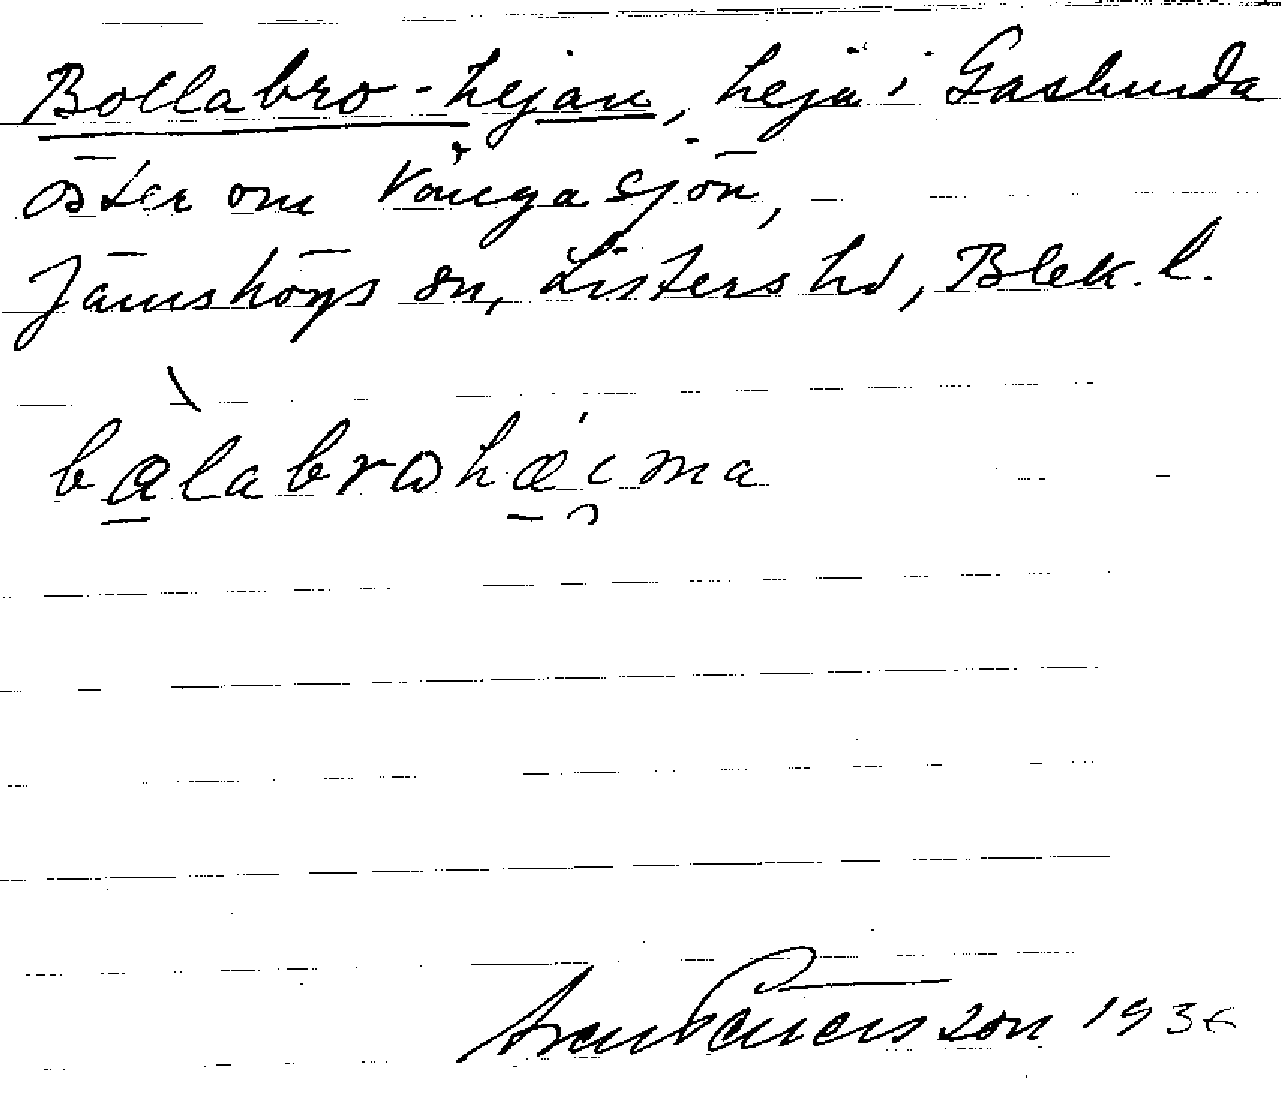 Bollabro-hejan, heja i Gashunda
öster om Vångasjön,
Jämshögs sn, Listers hd, Blek. l.
balabrohæima
1936